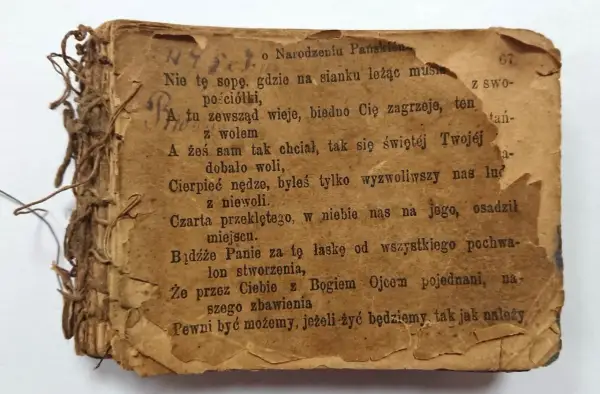 o Narodzeniu Pańskiém 67
Nie tę szopę, gdzie na sianku leżąc musia
z swo-
pościółki,
A tu zewsząd wieje, biedno Cię zagrzeje, ten
tań-
z wołem
A żeś sam tak chciał, tak się świętéj Twojéj
dobało woli,
Cierpieć nędzę, byleś tylko wyzwoliwszy nas lu
z niewoli.
Czarta przeklętego, w niebie nas na jego, osadził
miejscu.
Bądźże Panie za tę łaskę od wszystkiego pochwa-
lon stworzenia,
Że przez Ciebie z Bogiem Ojcem pojednani, na-
szego zbawienia
Pewni być możemy, jeżeli żyć będziemy, tak jak należy